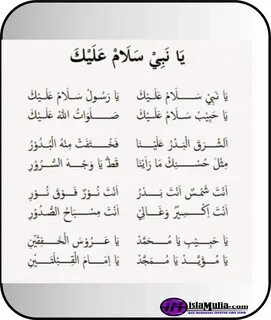 يَا نَبِيْ سَلَامْ عَلَيْكَ
يَا نَبِيْ سَـــلَامْ عَلَيْكَ يَا رَسُولْ سَلَامْ عَلَيْكَ
يَا حَبِيْبْ سَلَامْ عَلَيْكَ صَلَوَاتُ اللهْ عَلَيْكَ
اَشْرَقَ الْبَدْرُ عَلَيْنَا فَخْتَفَتْ مِنْهُ الْبُدُوْرُ
مِثْلَ حُسْنِكْ مَا رَأَيْنَا قَطُّ يَا وَجْهَ السُّرُوْرِ
اَنْتَ شَمْسٌ اَنْتَ بَدْرٌ اَنْتَ نُوْرٌ فَوْقَ نُوْرٍ
اَنْتَ اِكْسِيْرٌ وَغَالِيْ اَنْتَ مِصْبَاحُ الصُّدُوْرِ
يَا حَبِيْبِيْ يَا مُحَمَّدْ يَا عَرُوْسَ الْخَفِقَيْنِ
يَا مُؤَيَّدْ يَا مُمَجَّدْ يَا اِمَامَ الْقِبْلَتَيْنِ
islaMulia.com